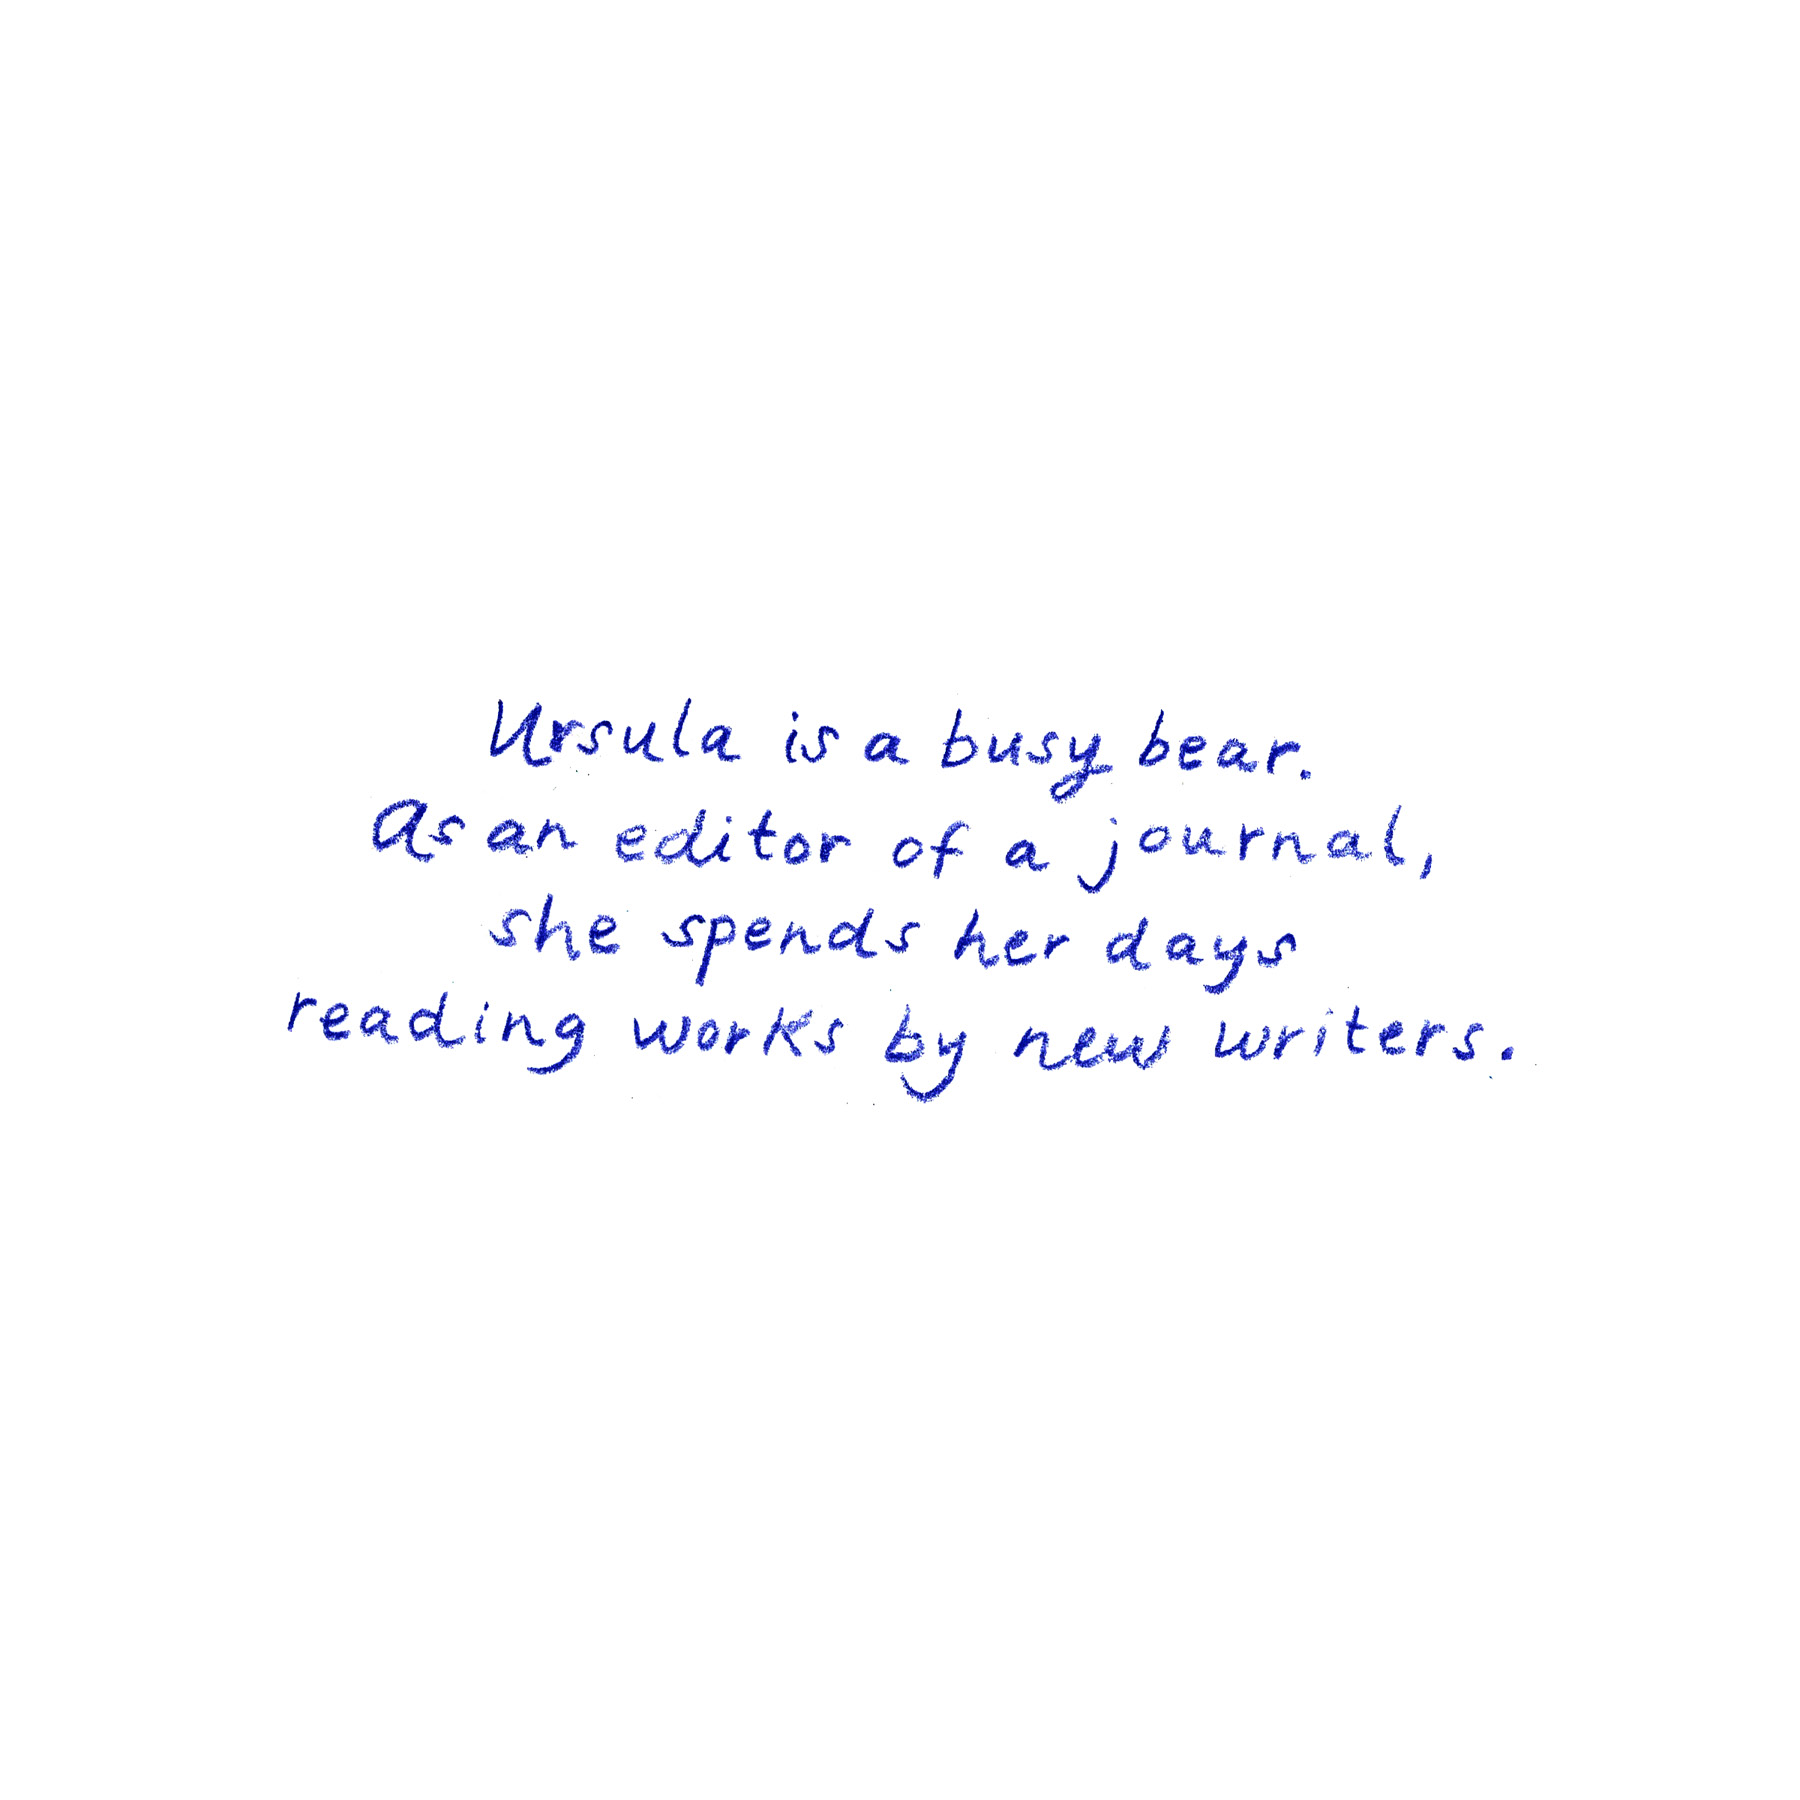 Ursula is a busy bear.
As an editor of a journal,
she spends her days
reading works by new writers.